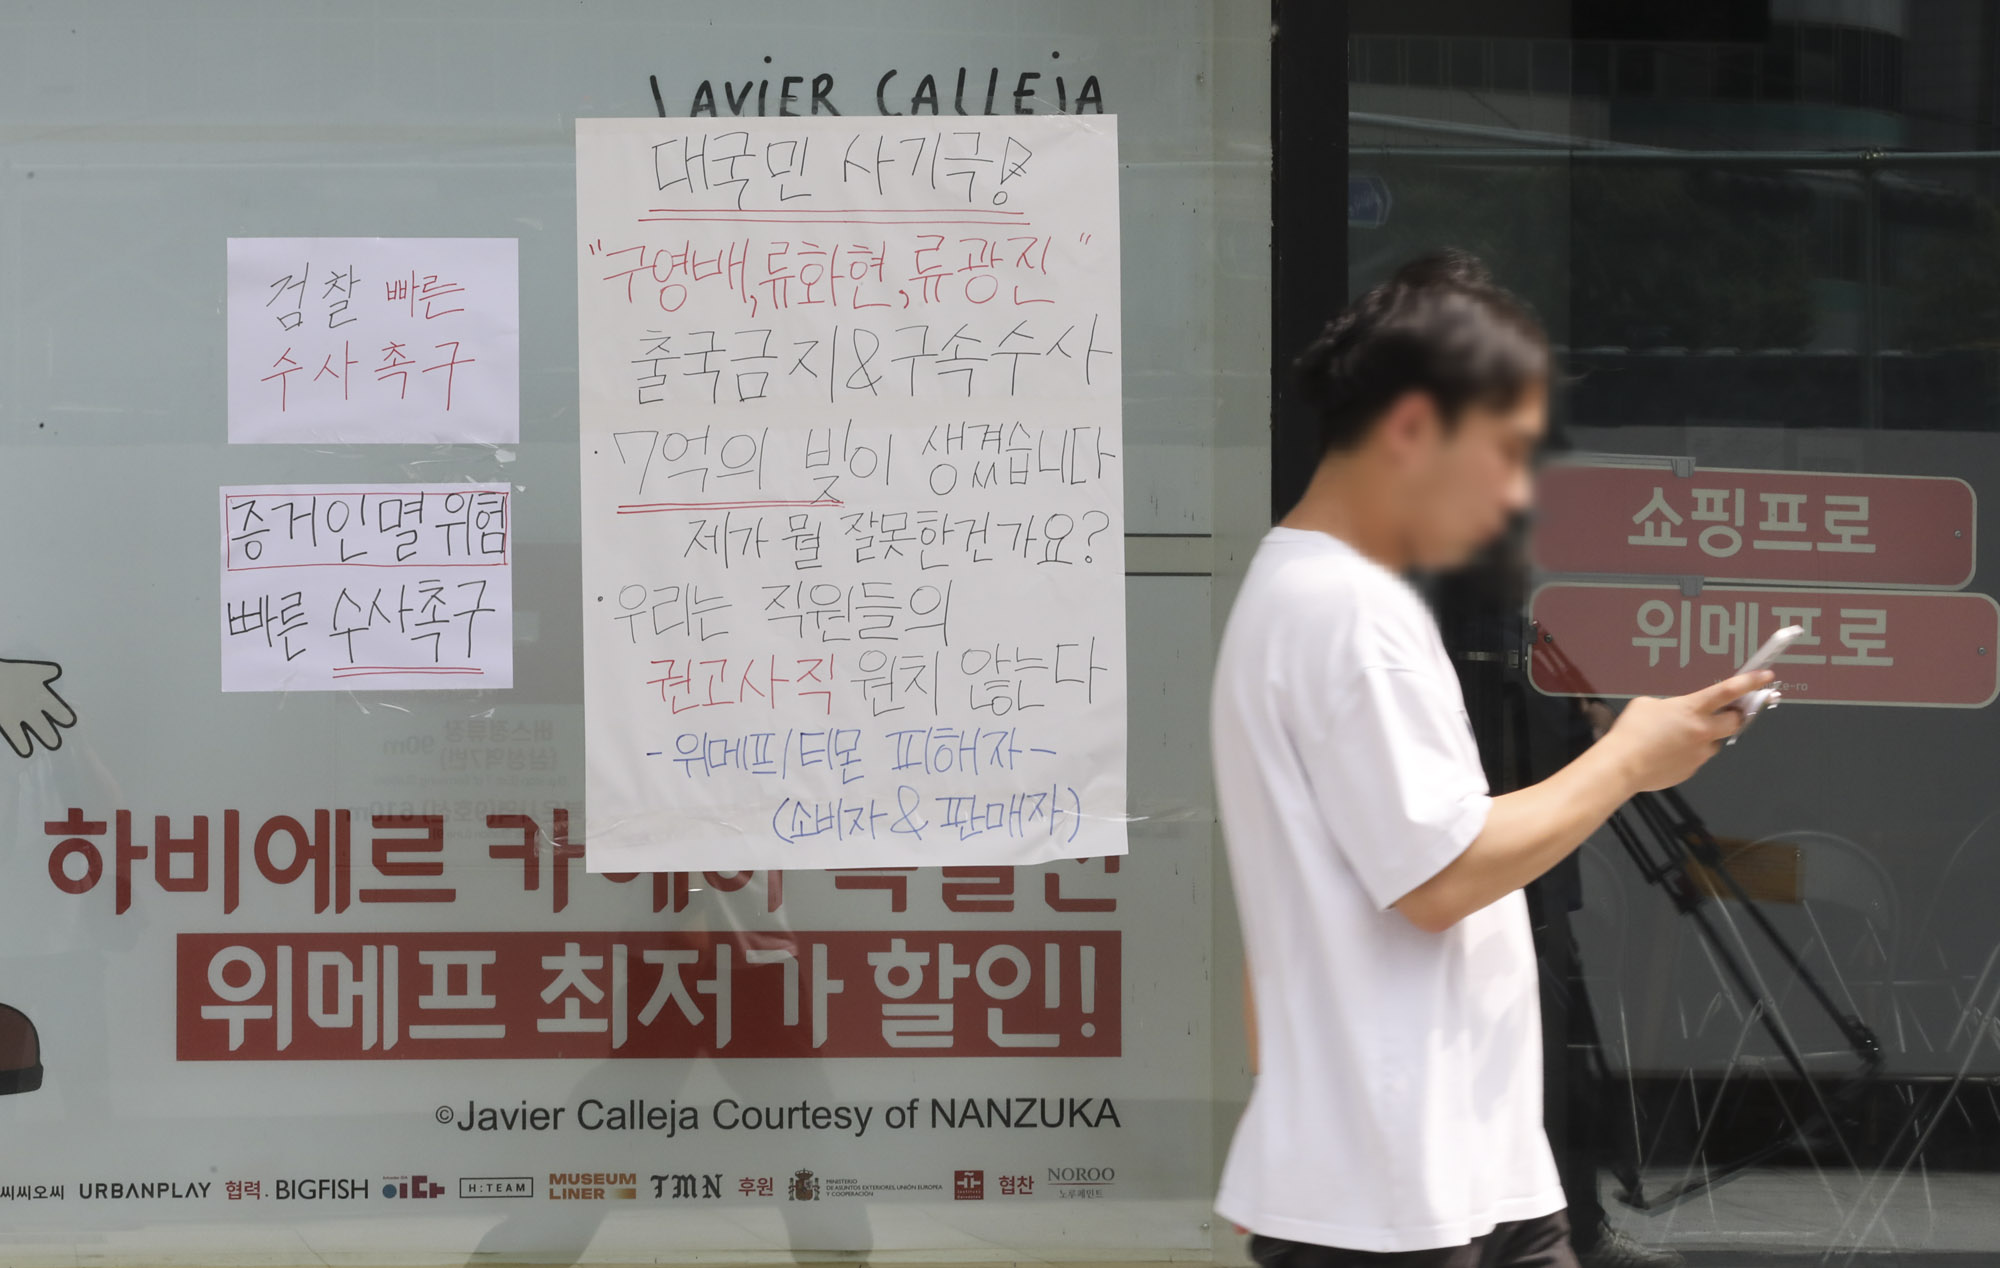 JAViER CALLEjA
대국민 사기극!
"구영배,류화현,류광진"
출국금지&구속수사
· 7억의 빚이 생겼습니다
제가 뭘 잘못한건가요?
· 우리는 직원들의
권고사직 원치 않는다
- 위메프/티몬 피해자 -
(소비자 & 판매자)
검찰 빠른
수사촉구
증거인멸위험
빠른 수사촉구
하비에르
위메프 최저가 할인!
©Javier Calleja Courtesy of NANZUKA
씨씨오씨 URBANPLAY 협력. BIGFISH H:TEAM MUSEUM LINER TMN 후원 협찬 NOROO 노루페인트
MINISTERIO DE ASUNTOS EXTERIORES, UNIÓN EUROPEA Y COOPERACIÓN
쇼핑프로
위메프로
버스정류장 90m
(삼성역7번)
610m